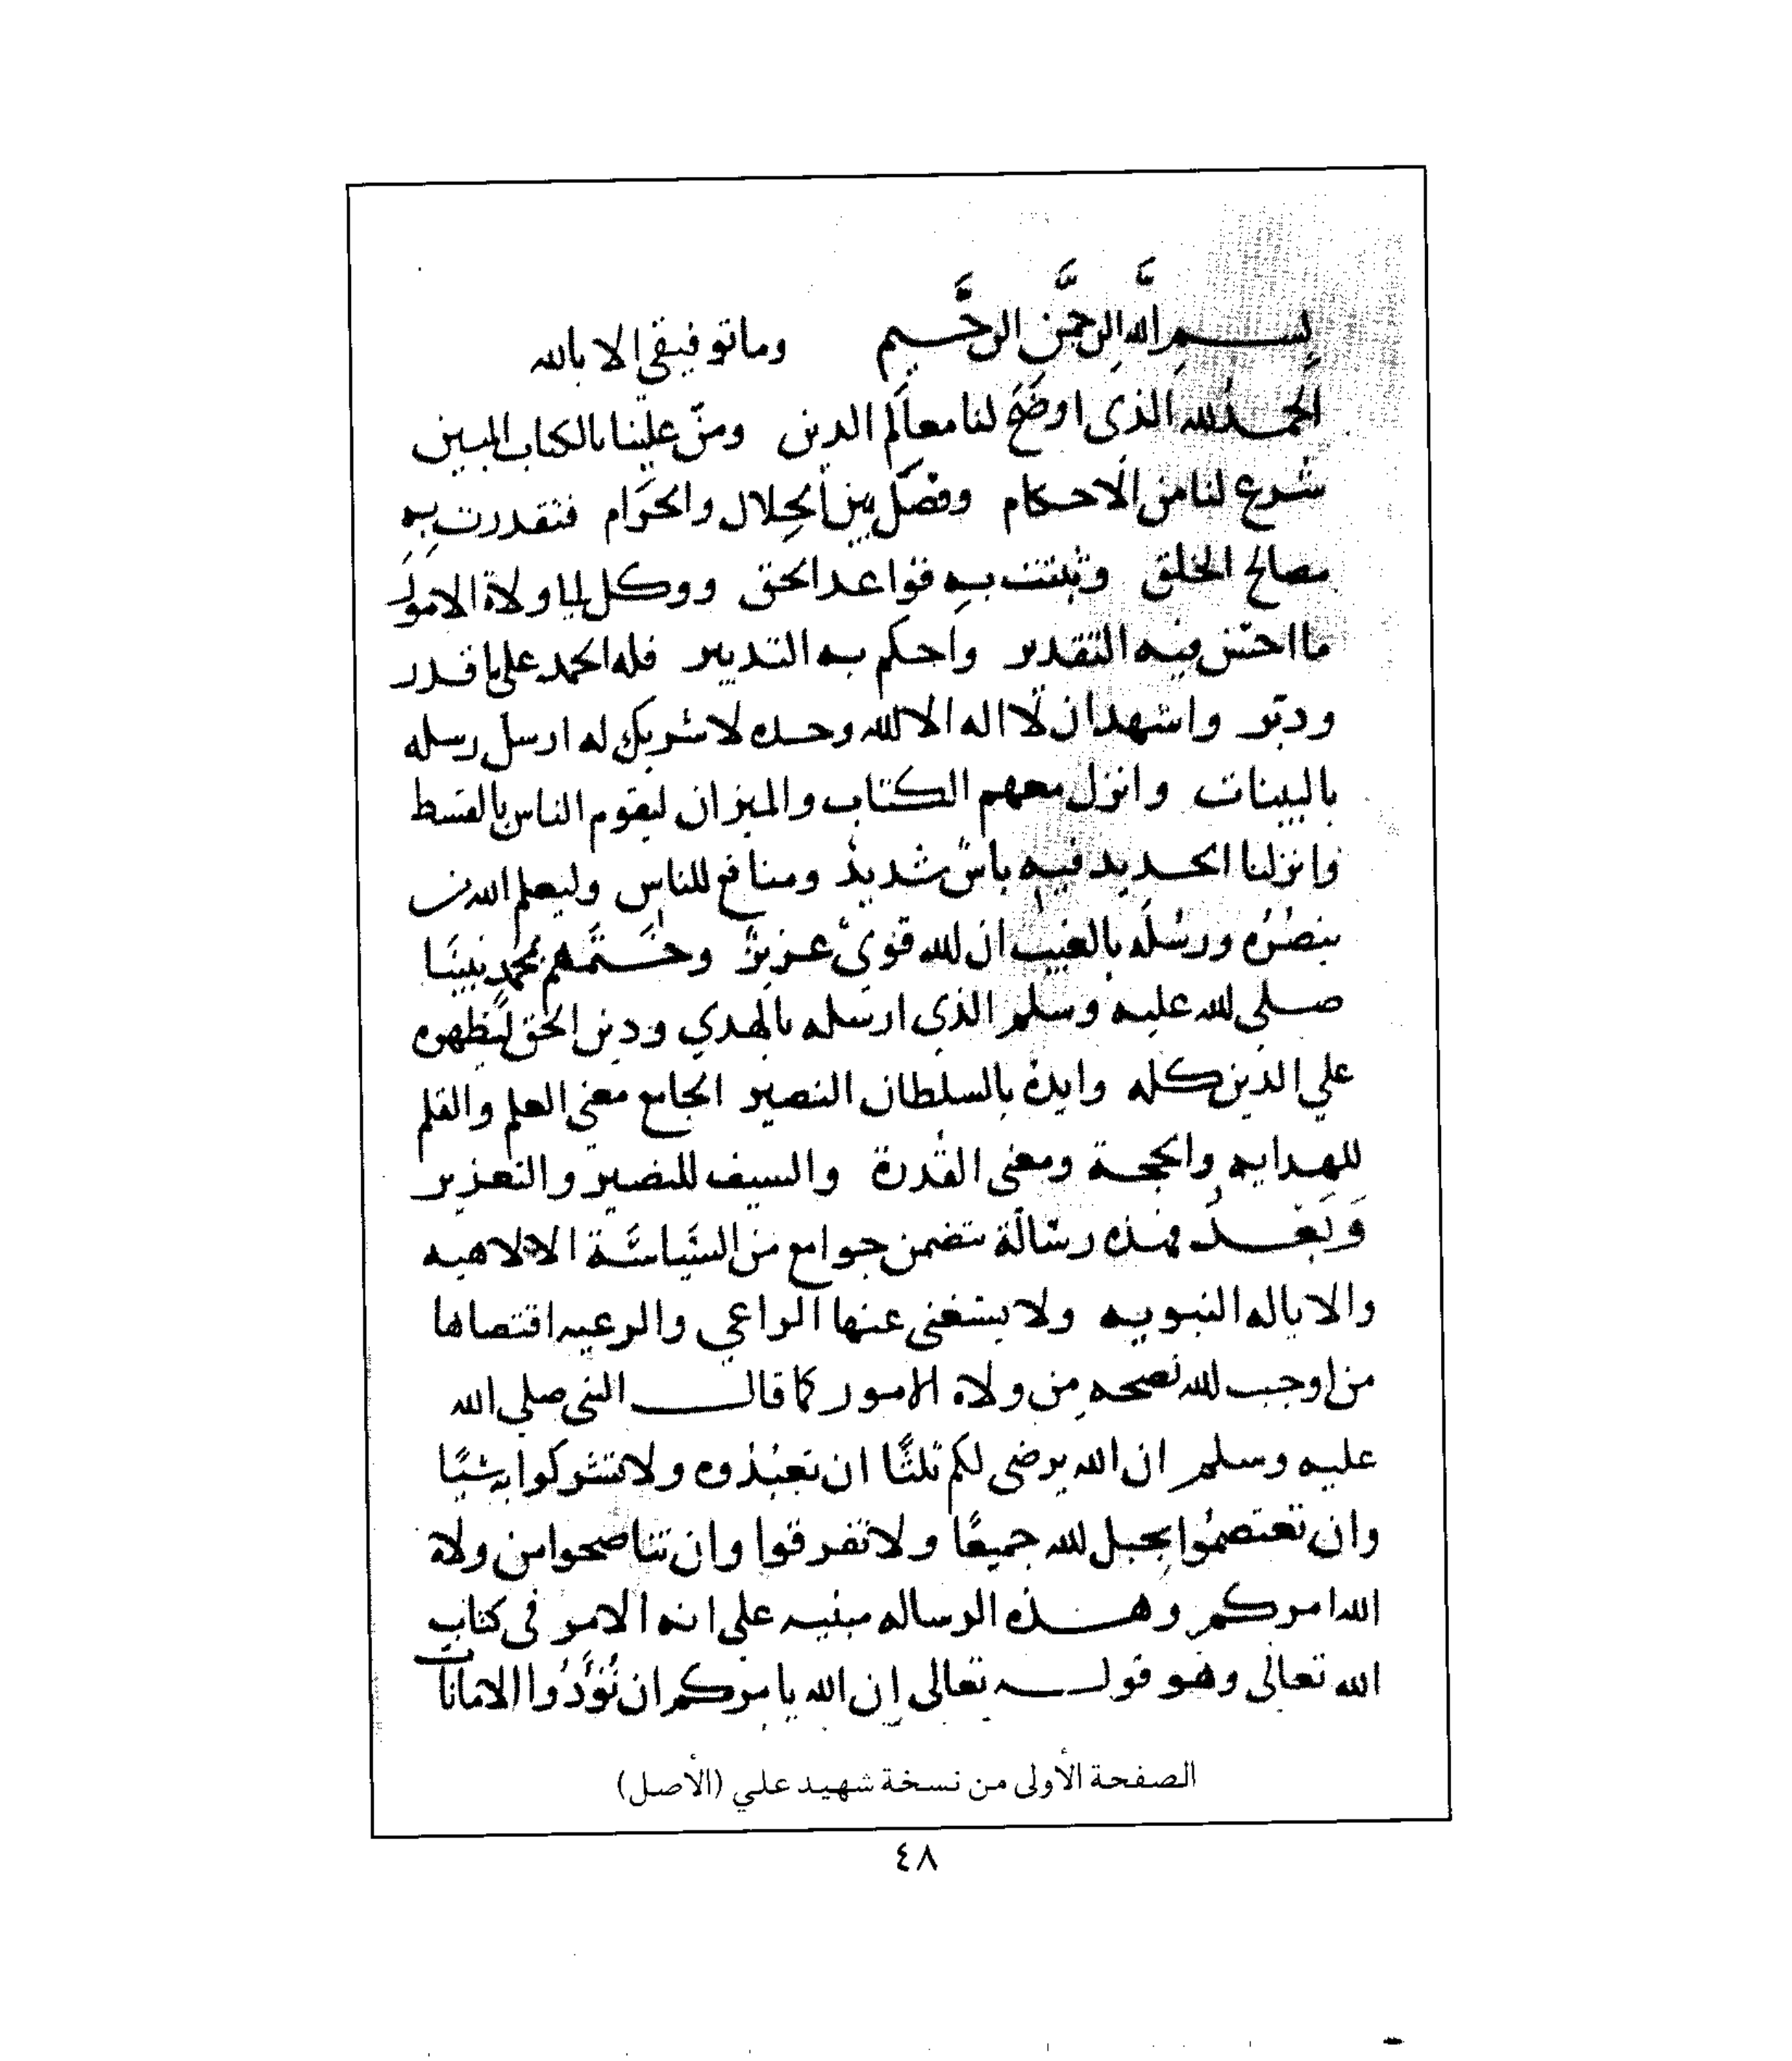 بسم الله الرحمن الرحيم وما توفيقي الا بالله
الحمد لله الذي اوضح لنا معالم الدين ومن علينا بالكتاب المبين
شرع لنا من الاحكام وفصل بين الحلال والحرام فتقدرت به
مصالح الخلق وثبتت به قواعد الحق ووكل الى ولاة الامور
ما احسن فيه التقدير واحكم به التدبير فله الحمد على ما قدر
ودبر واشهد ان لا اله الا الله وحده لا شريك له ارسل رسله
بالبينات وانزل معهم الكتاب والميزان ليقوم الناس بالقسط
وانزلنا الحديد فيه باس شديد ومنافع للناس وليعلم الله من
ينصره ورسله بالغيب ان الله قوي عزيز وختمهم بمحمد نبينا
صلى الله عليه وسلم الذي ارسله بالهدي ودين الحق ليظهره
علي الدين كله وايده بالسلطان النصير الجامع معنى العلم والقلم
للهدايه والحجة ومعنى القدرة والسيف للنصير والتعزير
وَبَعدُ فهذه رسالة تتضمن جوامع من السياسة الالاهيه
والاياله النبويه ولا يستغني عنها الراعي والرعيه اقتصاها
من اوجب الله نصحه من ولاه الامور كما قال النبي صلي الله
عليه وسلم ان الله يرضى لكم ثلثًا ان تعبدوه ولا تشركوا به شيًا
وان تعتصموا بحبل الله جميعًا ولا تفرقوا وان تناصحوا من ولاه
الله امركم وهذه الرساله مبنيه علي انه الامر في كتاب
الله تعالى وهو قوله تعالى ان الله يامركم ان تُؤَدُّوا الامانات
الصفحة الأولى من نسخة شهيد علي (الأصل)
٤٨